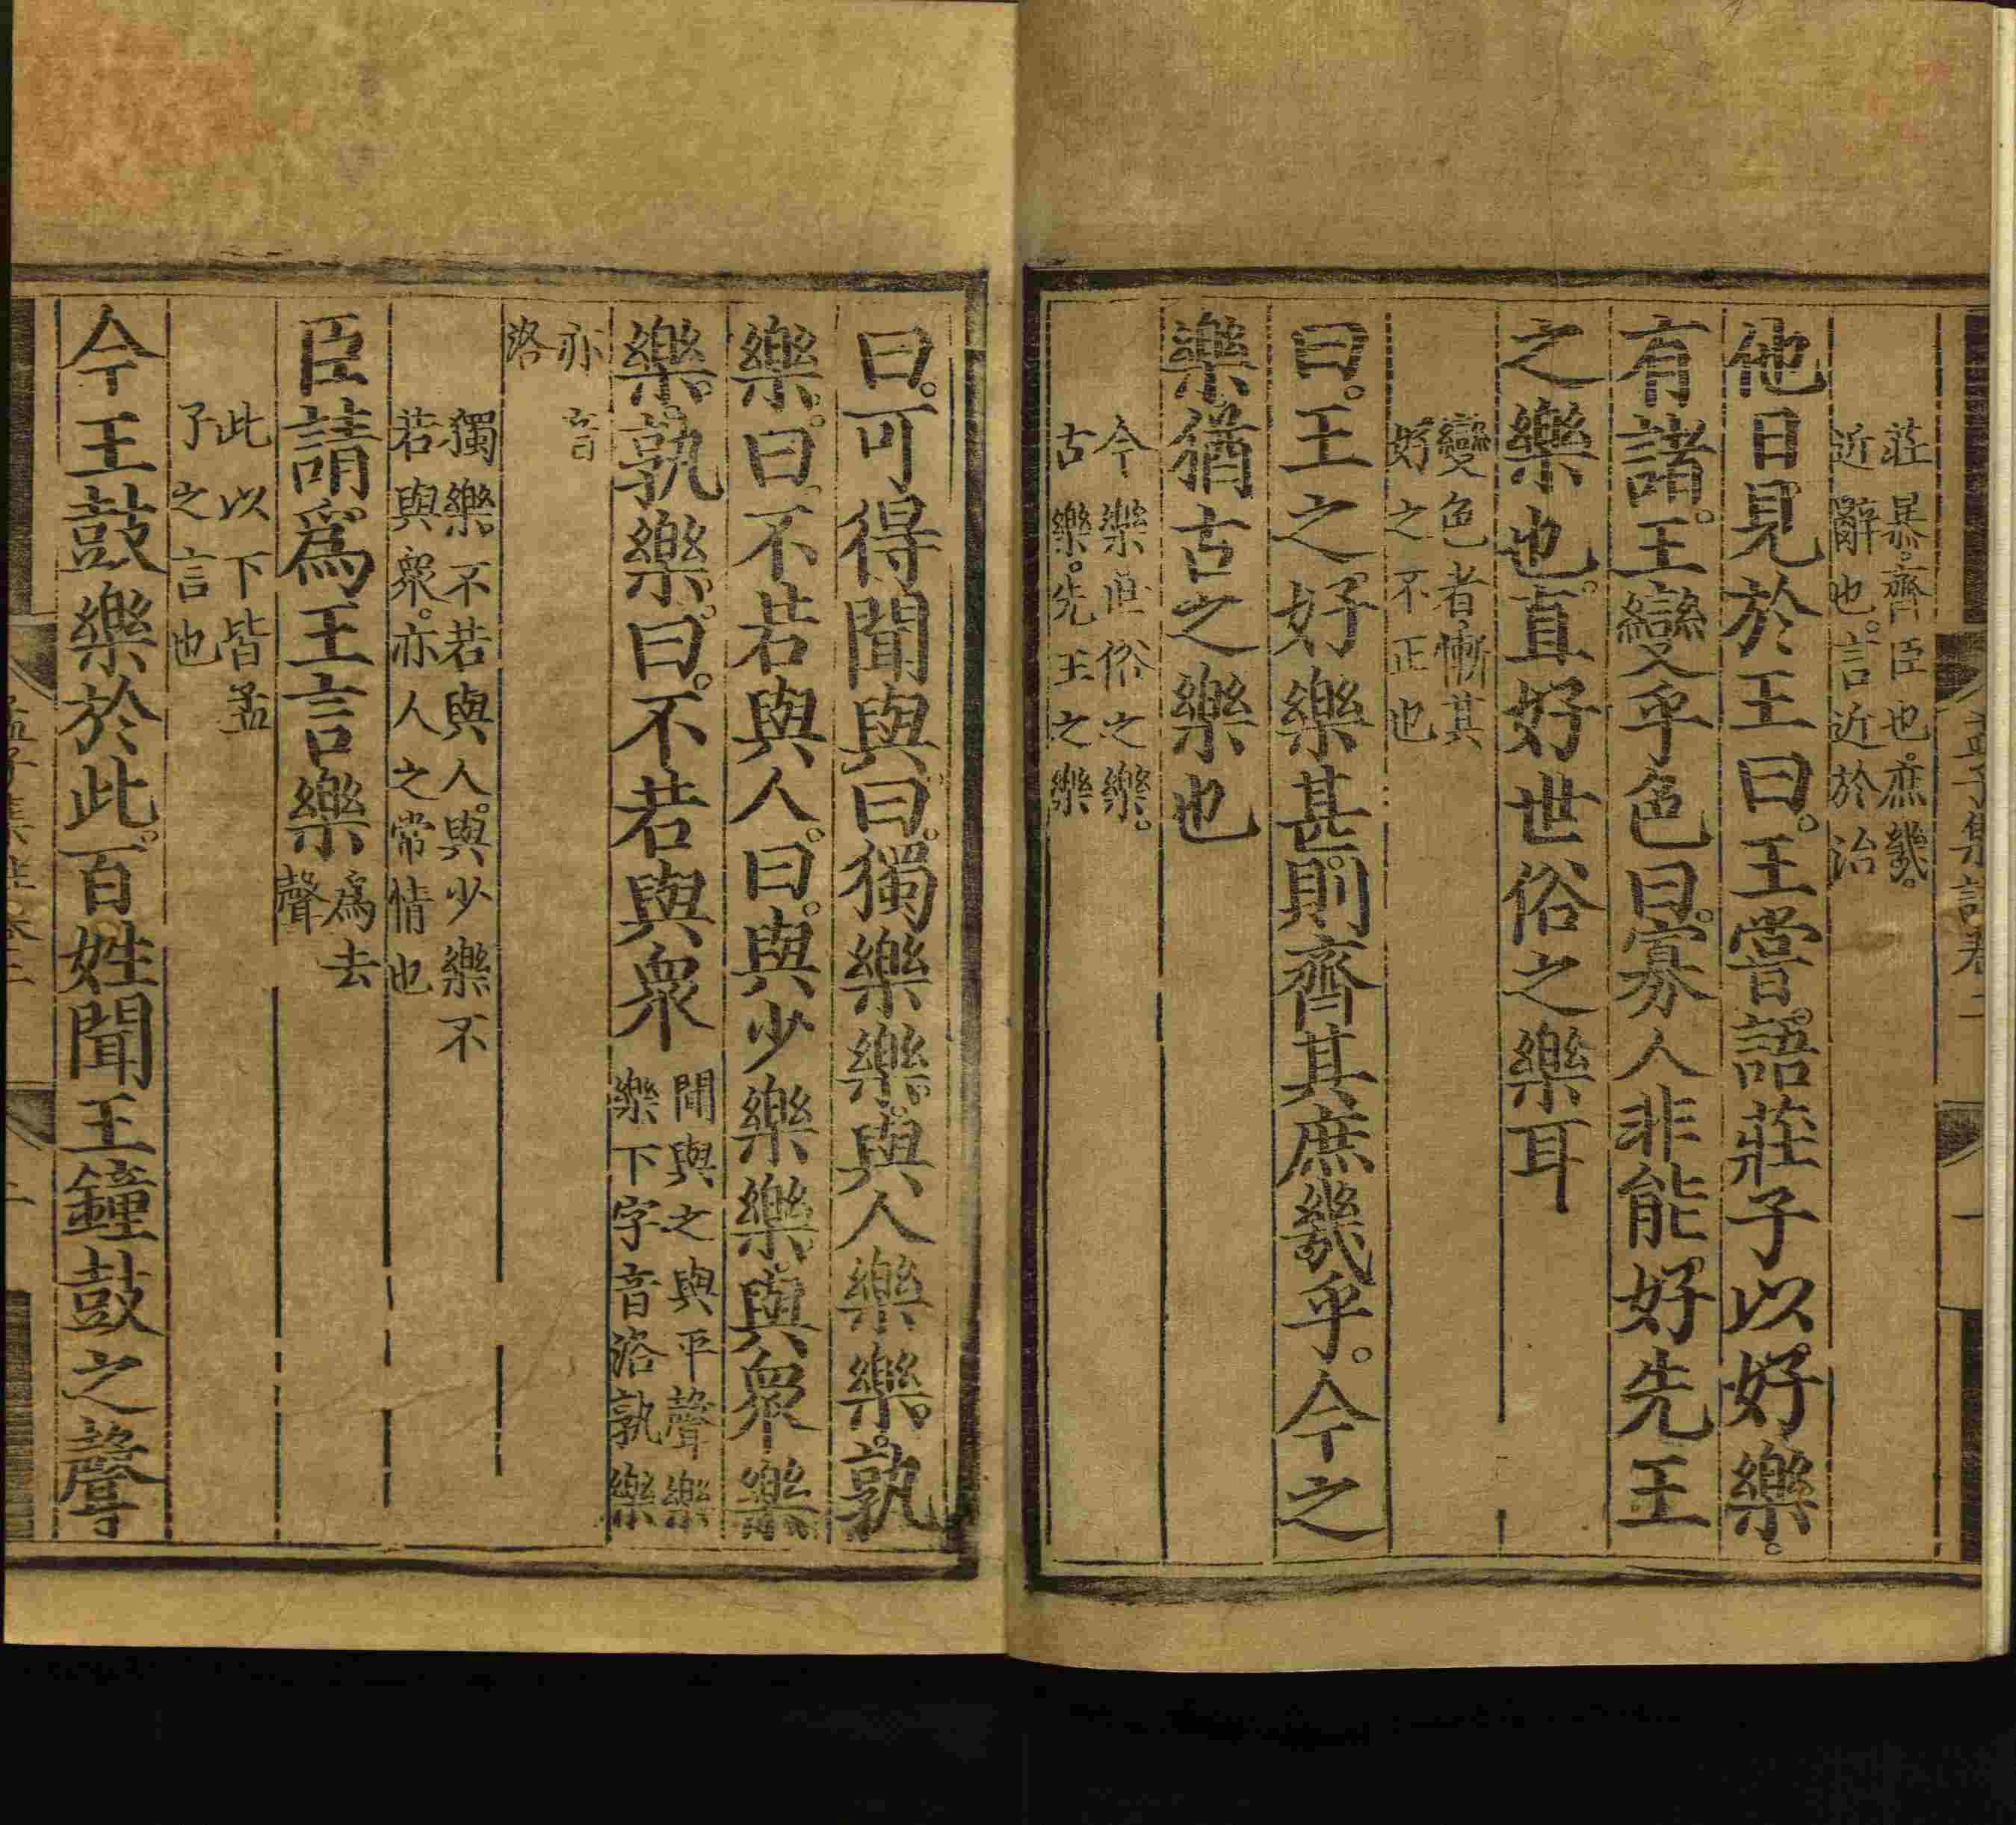 孟子集註卷二
一
莊暴。齊臣也。庶幾。
近辭也。言近於治
他日見於王曰。王嘗語莊子以好樂。
有諸。王變乎色曰。寡人非能好先王
之樂也。直好世俗之樂耳
變色者慚其
好之不正也
曰。王之好樂甚。則齊其庶幾乎。今之
樂猶古之樂也
今樂世俗之樂。
古樂。先王之樂
曰。可得聞與曰。獨樂樂。與人樂樂。孰
樂。曰不若與人。曰。與少樂樂。與衆樂
樂。孰樂。曰。不若與衆
聞與之與平聲樂
樂下字音洛孰樂
亦音
洛
獨樂不若與人。與少樂不
若與衆。亦人之常情也
臣請爲王言樂
爲去
聲
此以下皆孟
子之言也
今王鼓樂於此。百姓聞王鐘鼓之聲
孟子集註卷二